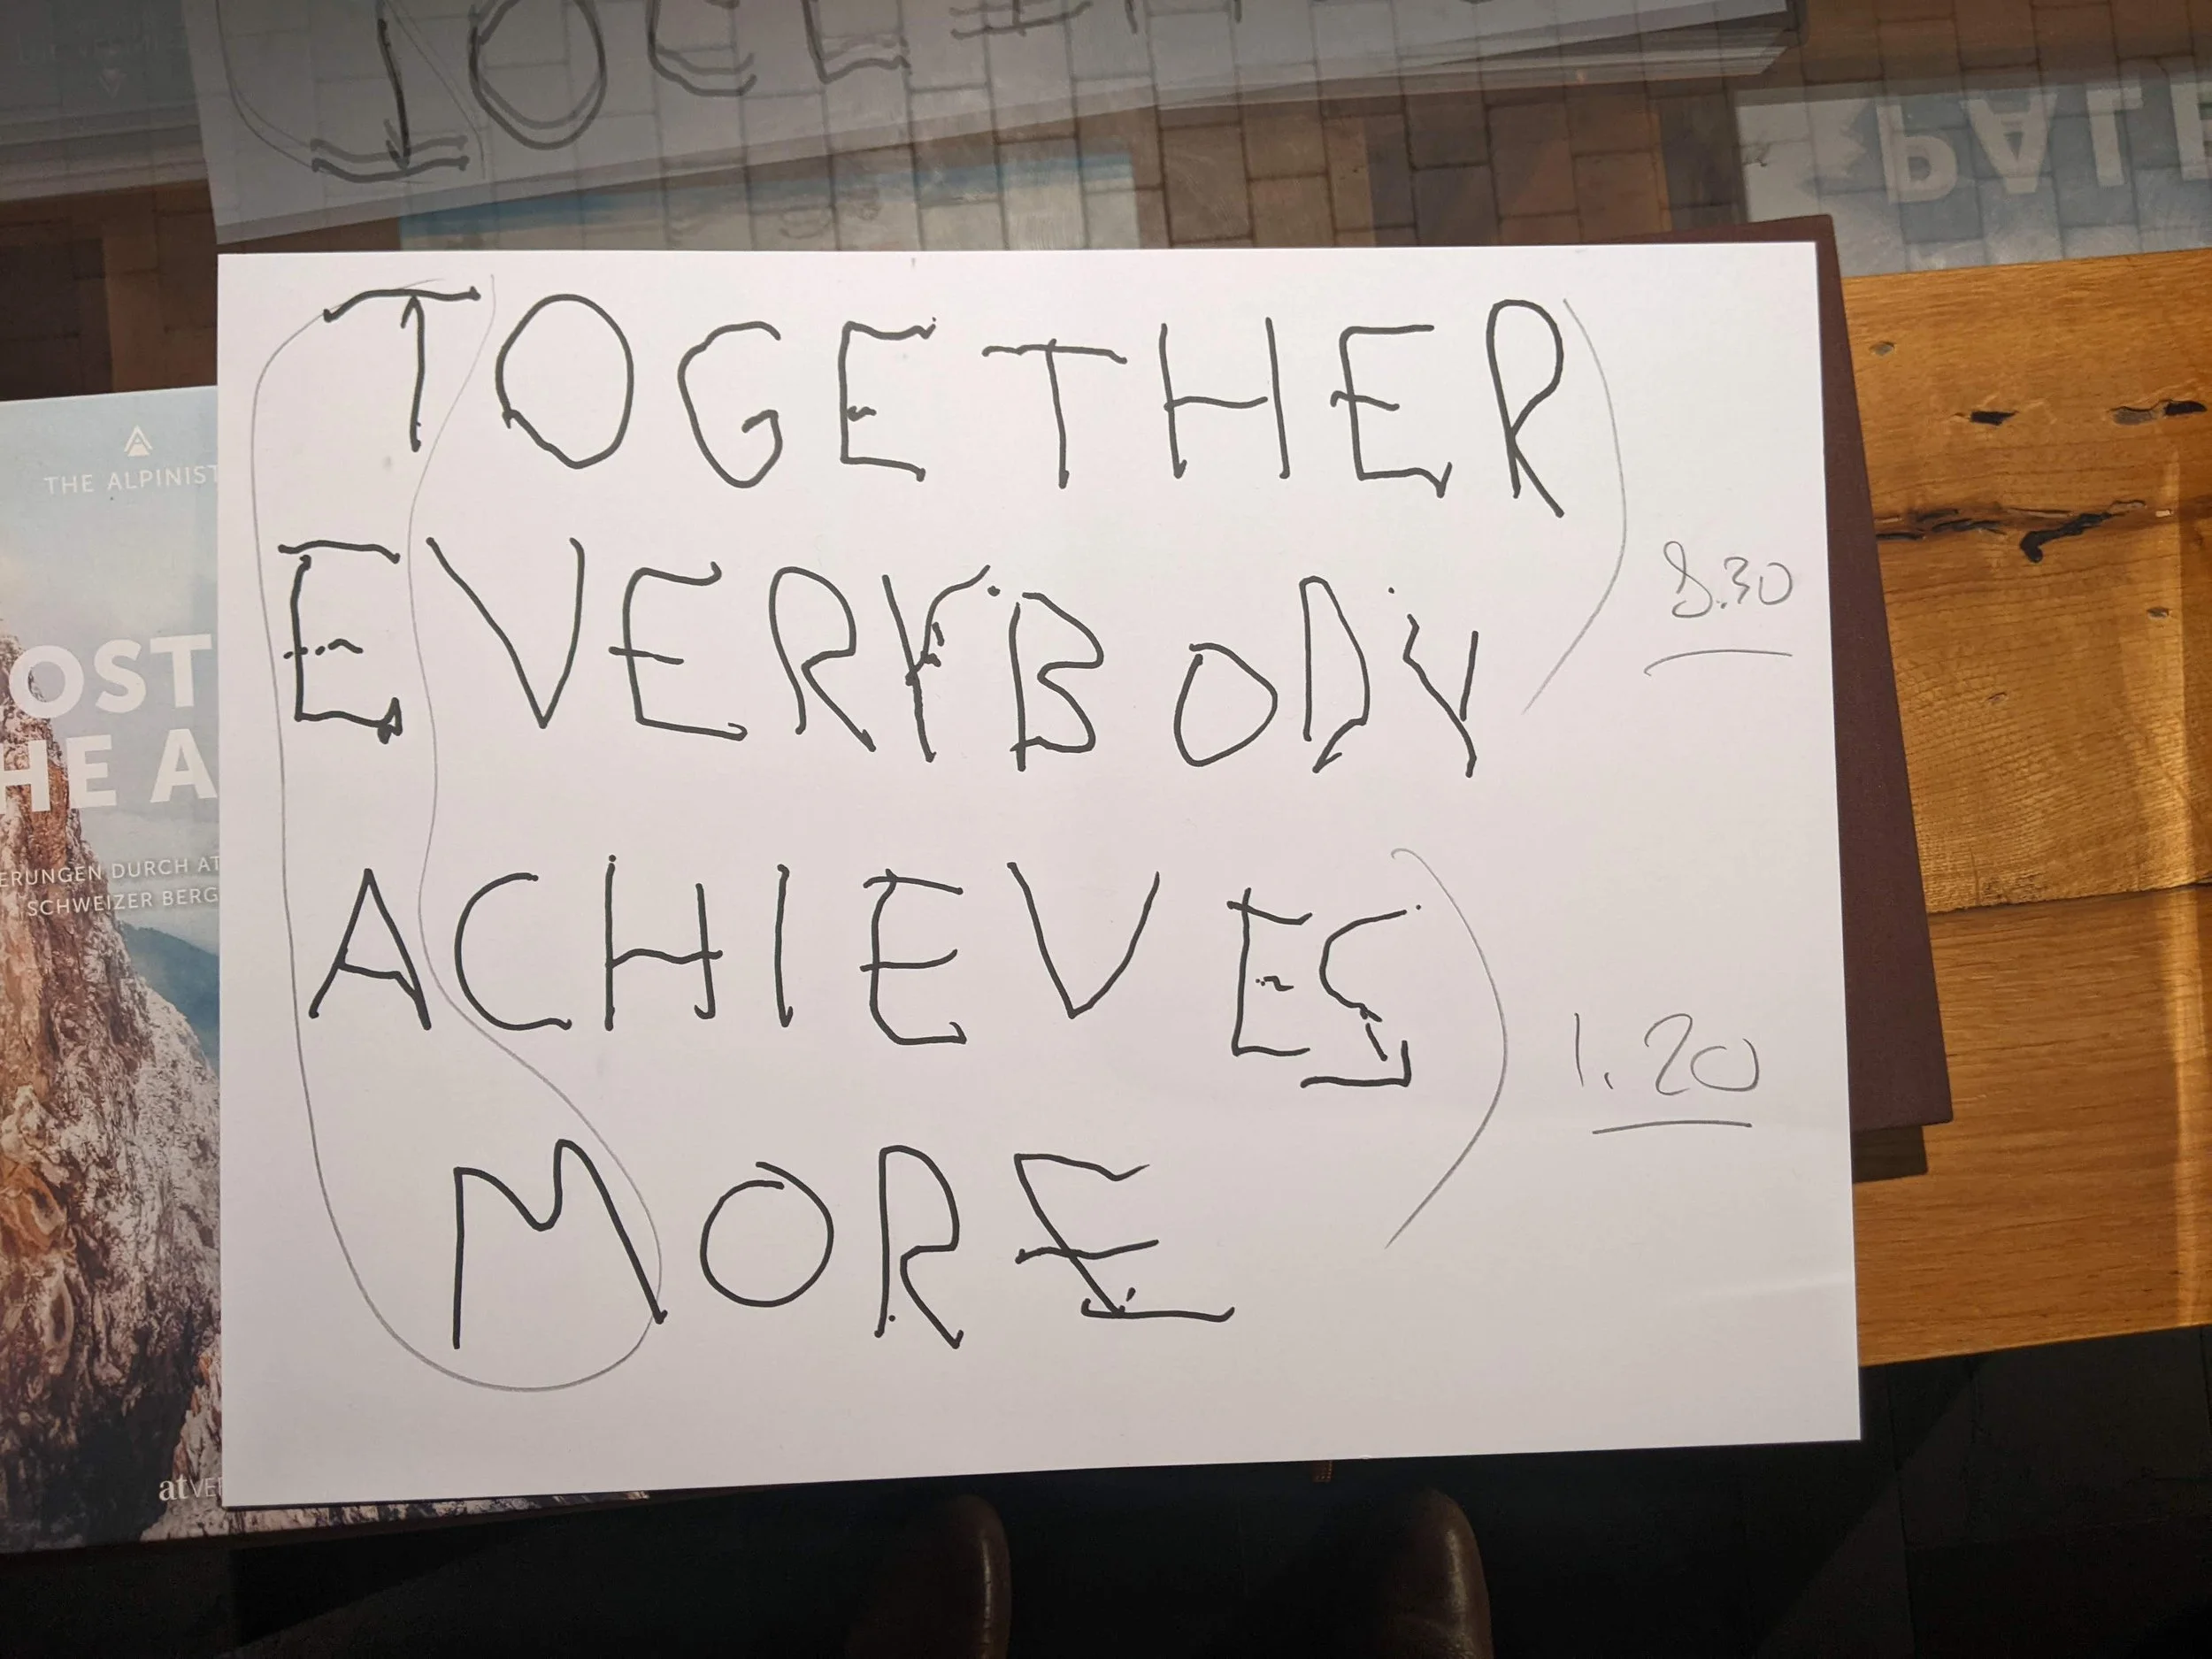 THE ALPINIST
OST
HE A
ERUNGEN DURCH AT
SCHWEIZER BERG
atVE
TOGETHER
EVERYBODY
8.30
ACHIEVES
1.20
MORE